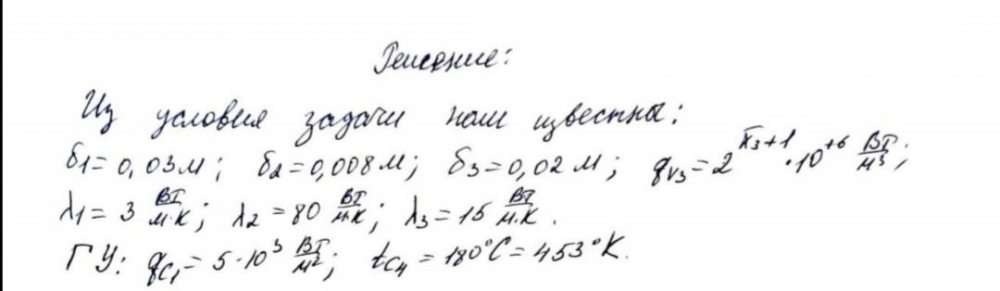 Решение:
Из условия задачи нам известны:
δ1=0,03м; δ2=0,008м; δ3=0,02 м; qv3=2^(x̄3+1)·10^(+6) Вт/м³;
λ1= 3 Вт/м·К; λ2 =80 Вт/м·К; λ3=15 Вт/м·К.
ГУ: qc1= 5·10³ Вт/м²; tc4 = 180°C = 453°К.